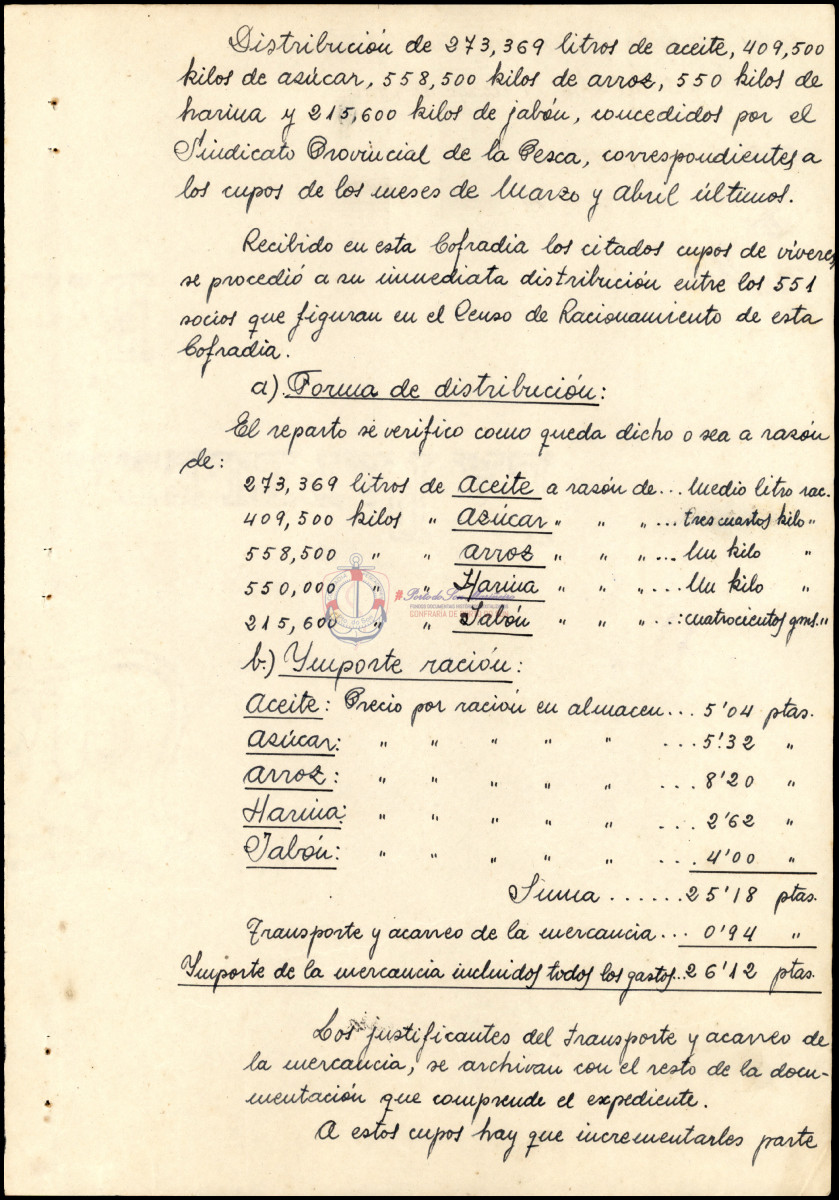 Distribución de 273,369 litros de aceite, 409,500
kilos de azúcar, 558,500 kilos de arroz, 550 kilos de
harina y 215,600 kilos de jabón, concedidos por el
Sindicato Provincial de la Pesca, correspondientes a
los cupos de los meses de Marzo y Abril últimos.
Recibido en esta Cofradia los citados cupos de víveres,
se procedió a su inmediata distribución entre los 551
socios que figuran en el Censo de Racionamiento de esta
Cofradia.
a) Forma de distribución:
El reparto se verifico como queda dicho o sea a razón
de:
273,369 litros de Aceite a razón de... Medio litro rac.
409,500 kilos " Azúcar " " " ... tres cuartos kilo "
558,500 " " Arroz " " " ... Un kilo "
550,000 " " Harina " " " ... Un kilo "
215,600 " " Jabón " " " ..: cuatrocientos gms. "
b.) Ymporte ración:
Aceite: Precio por ración en almacen ... 5'04 ptas.
Azúcar: " " " " " ... 5'32 "
Arroz: " " " " " ... 8'20 "
Harina: " " " " " ... 2'62 "
Jabón: " " " " " ... 4'00 "
Suma ...... 25'18 ptas.
Transporte y acarreo de la mercancia ... 0'94 "
Ymporte de la mercancia incluidos todos los gastos .. 26'12 ptas.
Los justificantes del transporte y acarreo de
la mercancia, se archivan con el resto de la docu-
mentación que comprende el expediente.
A estos cupos hay que incrementarles parte